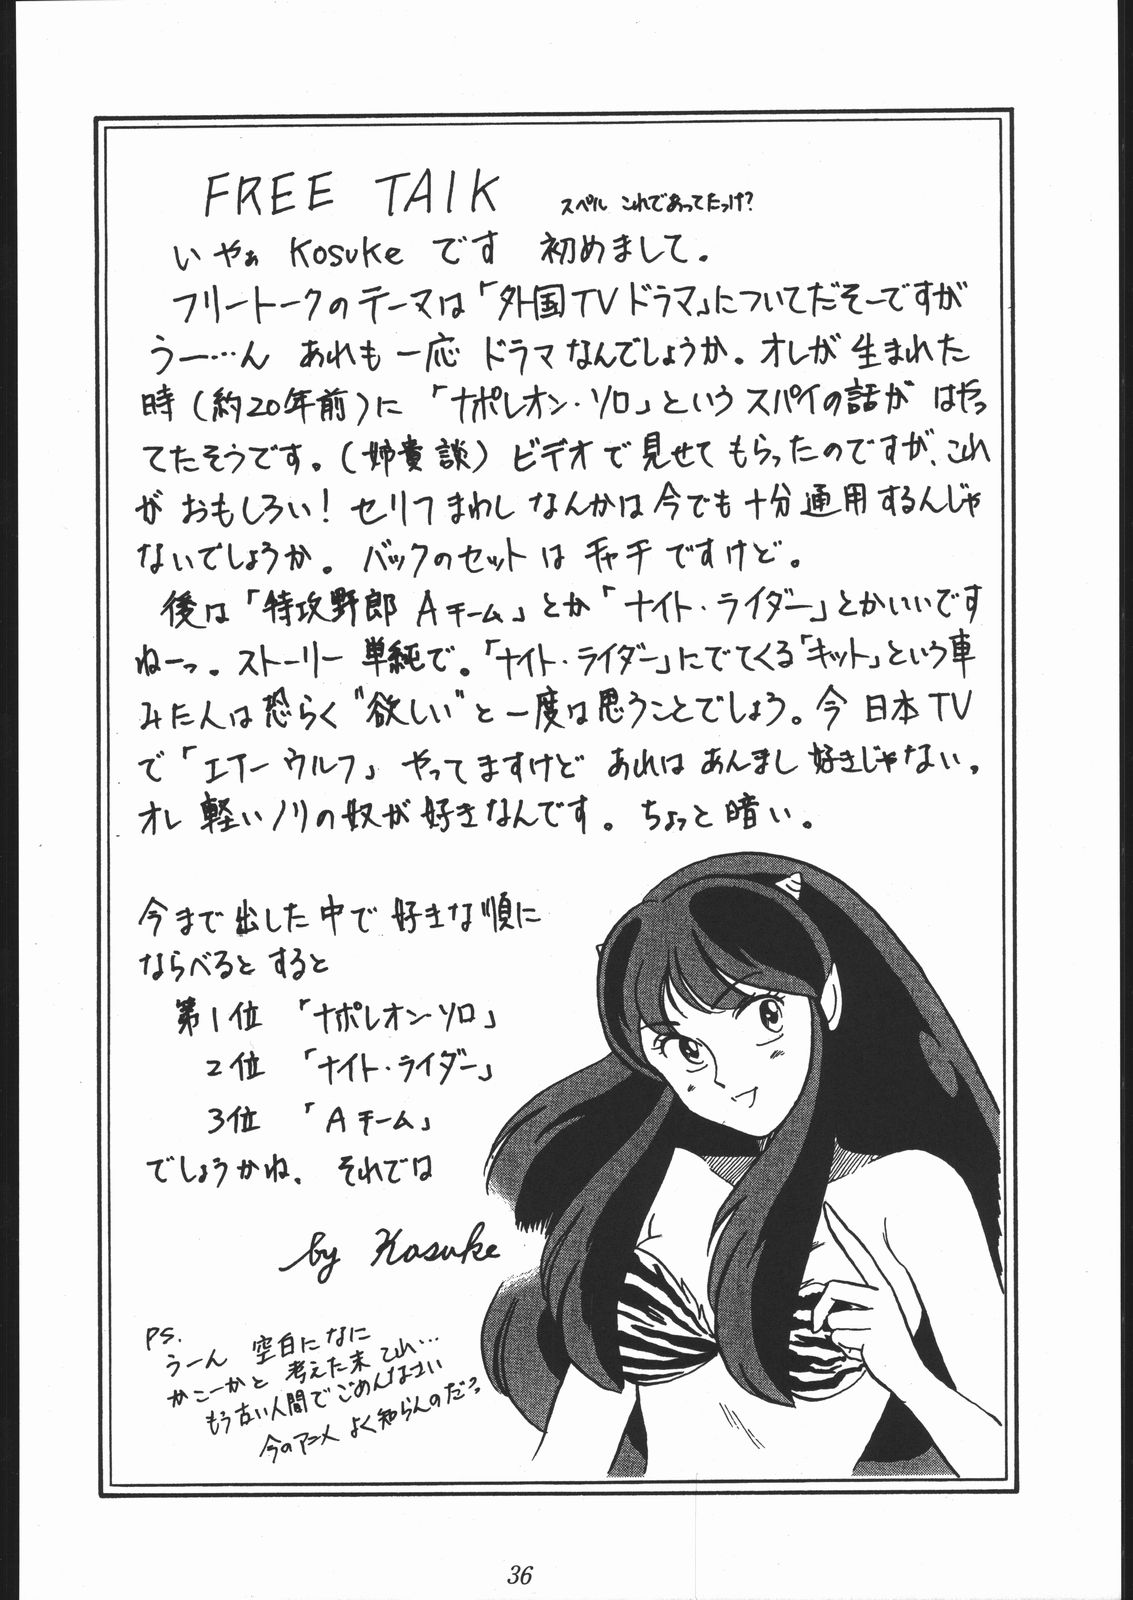 FREE TAlK スペル これであってたっけ?
いやぁ Kosuke です 初めまして。
フリートークのテーマは「外国TVドラマ」についてだそーですが
うー…ん あれも一応 ドラマなんでしょうか。オレが生まれた
時(約20年前)に 「ナポレオン・ソロ」というスパイの話が はやっ
てたそうです。(姉貴談) ビデオで見せてもらったのですが、これ
が おもしろい! セリフまわし なんかは今でも十分通用するんじゃ
ないでしょうか。 バックのセットは チャチですけど。
後は「特攻野郎 Aチーム」とか「ナイト・ライダー」とかいいです
ねーっ。ストーリー 単純で。「ナイト・ライダー」にでてくる「キット」という車
みた人は恐らく”欲しい”と一度は思うことでしょう。今 日本TV
で「エアーウルフ」 やってますけど あれはあんまし好きじゃない。
オレ 軽いノリの奴が好きなんです。ちょっと暗い。
今まで出した中で好きな順に
ならべるとすると
第1位 「ナポレオン・ソロ」
2位 「ナイト・ライダー」
3位 「Aチーム」
でしょうかね。 それでは
by Kosuke
PS.
うーん 空白になに
かこーかと 考えた末 これ…
もう古い人間でごめんなさい
今のアニメ よく知らんのだ?
36